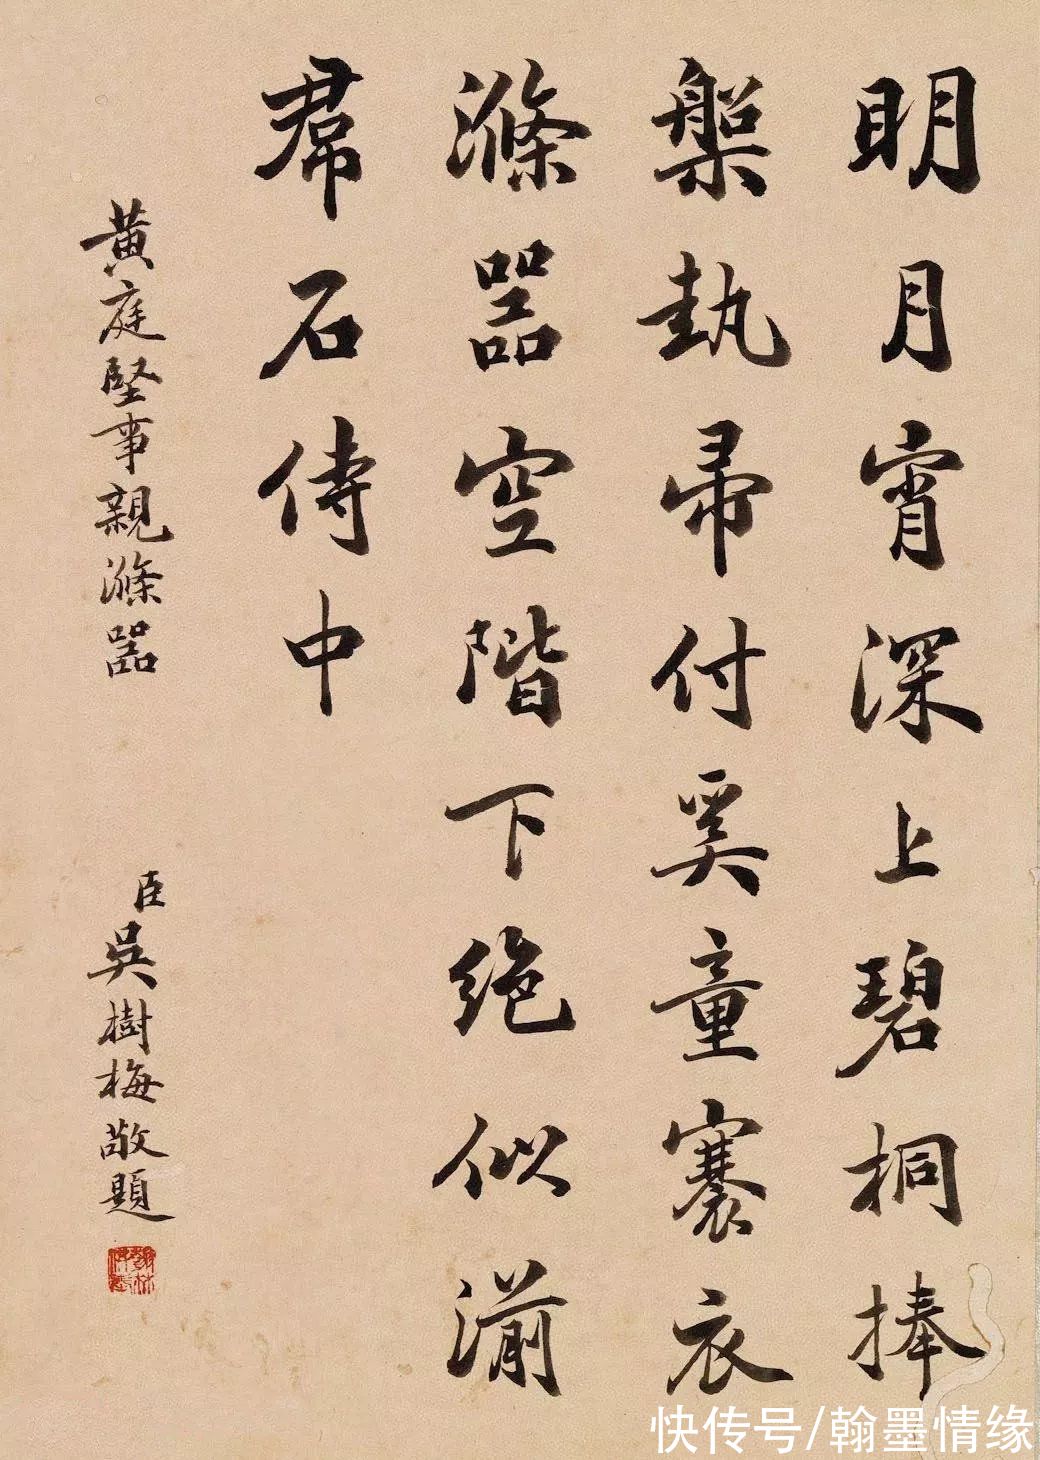 明月宵深上碧桐捧
槃執帚付奚童褰衣
滌器空階下絶似湔
帬石侍中
黃庭堅事親滌器
臣吳樹梅敬題
快传号/翰墨情缘